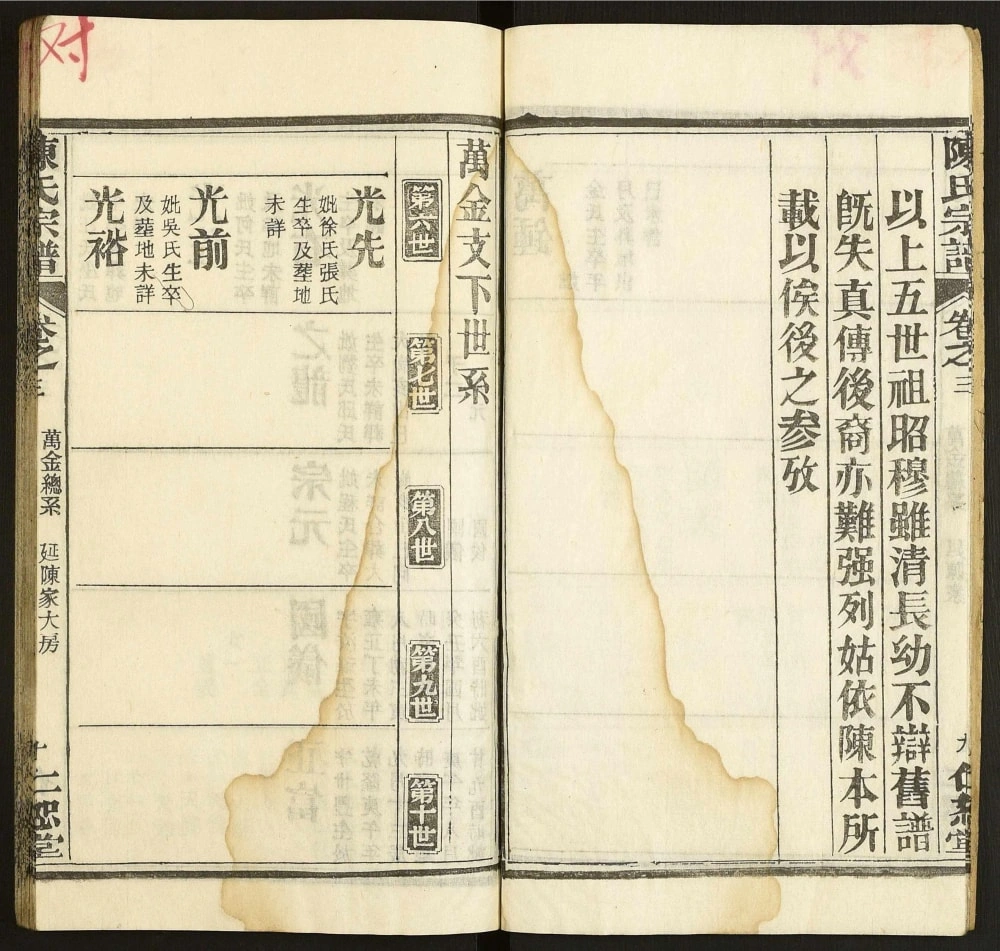 陳氏宗譜 卷之三 九
以上五世祖昭穆雖清長幼不辯舊譜
旣失真傳後裔亦難强列姑依陳本所
載以俟後之參攷
萬金支下世系
第六世
第七世
第八世
第九世
第十世
光先
妣徐氏張氏
生卒及塟地
未詳
光前
妣吳氏生卒
及塟地未詳
光裕
陳氏宗譜 卷之三 萬金總系 延陳家大房 十
对